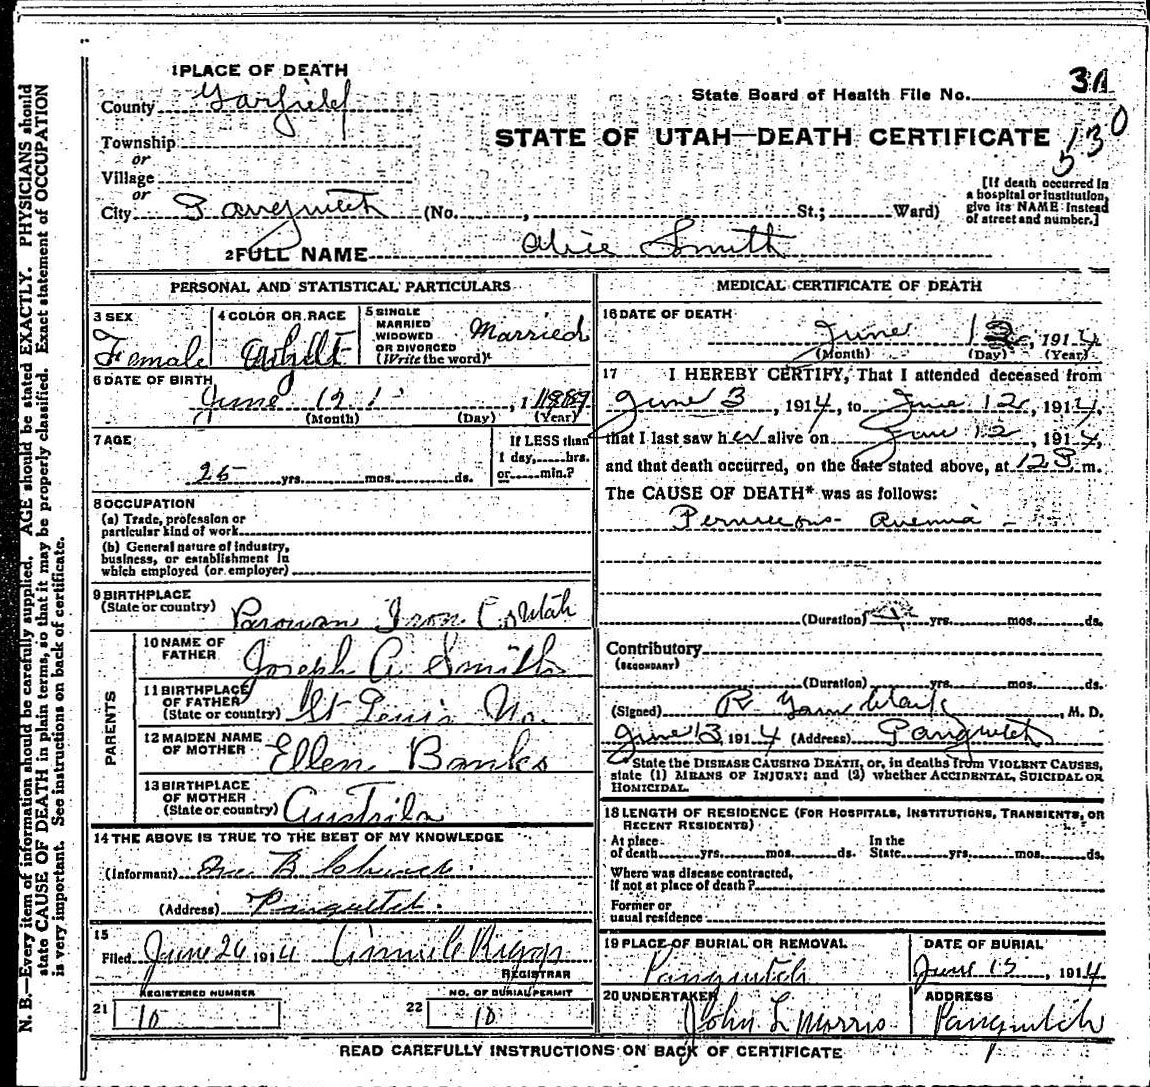 N. B.—Every item of information should be carefully supplied. AGE should be stated EXACTLY. PHYSICIANS should
state CAUSE OF DEATH in plain terms, so that it may be properly classified. Exact statement of OCCUPATION
is very important. See instructions on back of certificate.
1 PLACE OF DEATH
County Garfield
Township
or
Village
or
City Panguitch (No. , St.; Ward)
State Board of Health File No. 31
530
STATE OF UTAH—DEATH CERTIFICATE
[If death occurred in
a hospital or institution,
give its NAME instead
of street and number.]
2 FULL NAME Alice Smith
PERSONAL AND STATISTICAL PARTICULARS
3 SEX
Female
4 COLOR OR RACE
White
5 SINGLE
MARRIED
WIDOWED
OR DIVORCED
(Write the word)
Married
6 DATE OF BIRTH
June 12 1889
(Month) (Day) (Year)
7 AGE
25 yrs. mos. ds.
If LESS than
1 day, hrs.
or min.?
8 OCCUPATION
(a) Trade, profession or
particular kind of work
(b) General nature of industry,
business, or establishment in
which employed (or employer)
9 BIRTHPLACE
(State or country) Parowan Iron Co Utah
PARENTS
10 NAME OF
FATHER Joseph A. Smith
11 BIRTHPLACE
OF FATHER
(State or country) St Louis Mo.
12 MAIDEN NAME
OF MOTHER Ellen Banks
13 BIRTHPLACE
OF MOTHER
(State or country) Austrila
14 THE ABOVE IS TRUE TO THE BEST OF MY KNOWLEDGE
(Informant) B
(Address) Panguitch.
15
Filed June 26 1914 Riggs
REGISTRAR
21 REGISTERED NUMBER
10
22 NO. OF BURIAL PERMIT
10
MEDICAL CERTIFICATE OF DEATH
16 DATE OF DEATH
June 12, 1914
(Month) (Day) (Year)
17 I HEREBY CERTIFY, That I attended deceased from
June 3, 1914, to June 12, 1914,
that I last saw her alive on June 12, 1914,
and that death occurred, on the date stated above, at 12 P m.
The CAUSE OF DEATH* was as follows:
Pernicious Anemia
(Duration) yrs. mos. ds.
Contributory
(SECONDARY)
(Duration) yrs. mos. ds.
(Signed) R. Clark, M. D.
June 13, 1914 (Address) Panguitch
State the DISEASE CAUSING DEATH, or, in deaths from VIOLENT CAUSES,
state (1) MEANS OF INJURY; and (2) whether ACCIDENTAL, SUICIDAL OR
HOMICIDAL.
18 LENGTH OF RESIDENCE (FOR HOSPITALS, INSTITUTIONS, TRANSIENTS, OR
RECENT RESIDENTS)
At place
of death yrs. mos. ds.
In the
State yrs. mos. ds.
Where was disease contracted,
if not at place of death?
Former or
usual residence
19 PLACE OF BURIAL OR REMOVAL
Panguitch
DATE OF BURIAL
June 15, 1914
20 UNDERTAKER
John L Morris
ADDRESS
Panguitch
READ CAREFULLY INSTRUCTIONS ON BACK OF CERTIFICATE